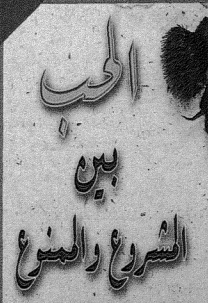 الحب
بين
المشروع والممنوع